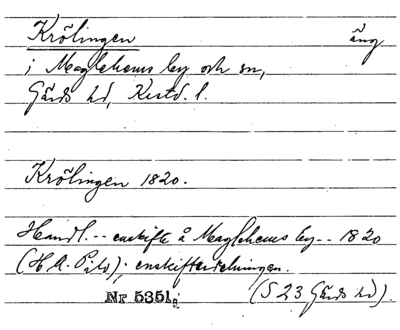 Krölingen äng
i Maglehems by och sn,
Gärds hd, Kristd. l.
Krölingen 1820.
Handl. -- enskifte å Maglehems by -- 1820
(H. A. ); enskiftesdelningen.
Nr 5351; (S 23 Gärds hd).